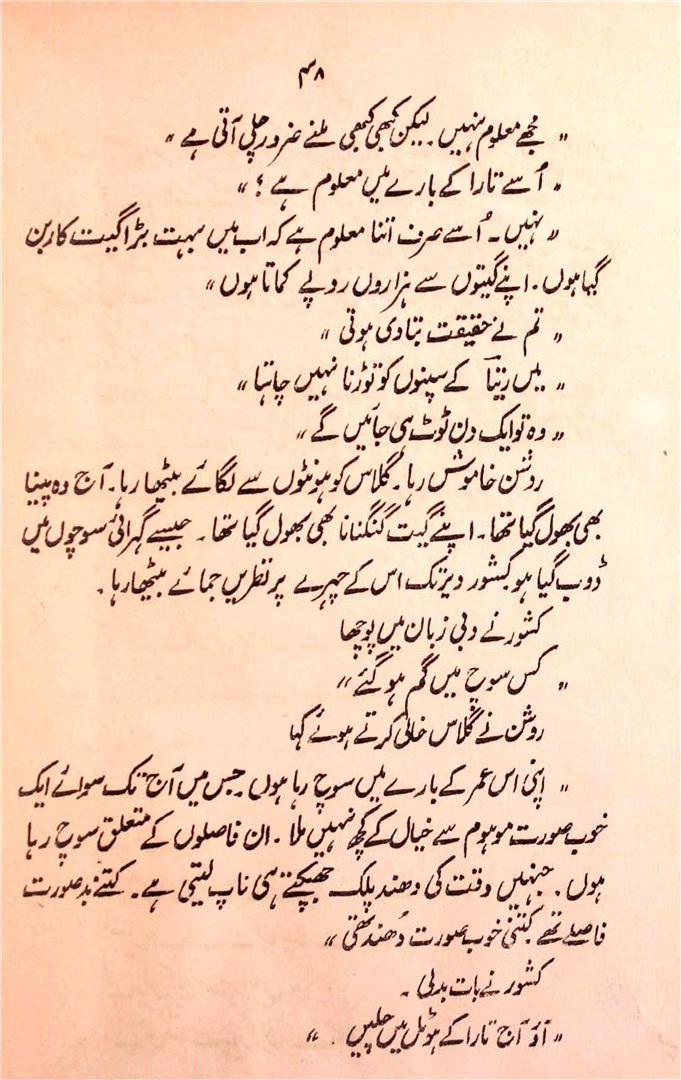 ۴۸
" مجھے معلوم نہیں۔ لیکن کبھی کبھی ملنے ضرور چلی آتی ہے "
" اُسے تارا کے بارے میں معلوم ہے ؟ "
" نہیں۔ اُسے صرف اتنا معلوم ہے کہ اب میں بہت بڑا گیت کار بن
گیا ہوں۔ اپنے گیتوں سے ہزاروں روپے کماتا ہوں "
" تم نے حقیقت بتا دی ہوتی "
" میں رینا کے سپنوں کو توڑنا نہیں چاہتا "
" وہ تو ایک دن ٹوٹ ہی جائیں گے "
روشن خاموش رہا۔ گلاس کو ہونٹوں سے لگائے بیٹھا رہا۔ آج وہ پینا
بھی بھول گیا تھا۔ اپنے گیت گنگنانا بھی بھول گیا تھا۔ جیسے گہرائی سوچوں میں
ڈوب گیا ہو کشور دیر تک اس کے چہرے پر نظریں جمائے بیٹھا رہا۔
کشور نے دبی زبان میں پوچھا
" کس سوچ میں گم ہو گئے "
روشن نے گلاس خالی کرتے ہوئے کہا
" اپنی اس عمر کے بارے میں سوچ رہا ہوں جس میں آج تک سوائے ایک
خوب صورت موہوم سے خیال کے کچھ نہیں ملا۔ ان فاصلوں کے متعلق سوچ رہا
ہوں۔ جنہیں وقت کی دھند پلک جھپکتے ہی ناپ لیتی ہے۔ کتنے بدصورت
فاصلے تھے کتنی خوب صورت دُھند تھی "
کشور نے بات بدلی۔
" آؤ آج تارا کے ہوٹل میں چلیں۔ "